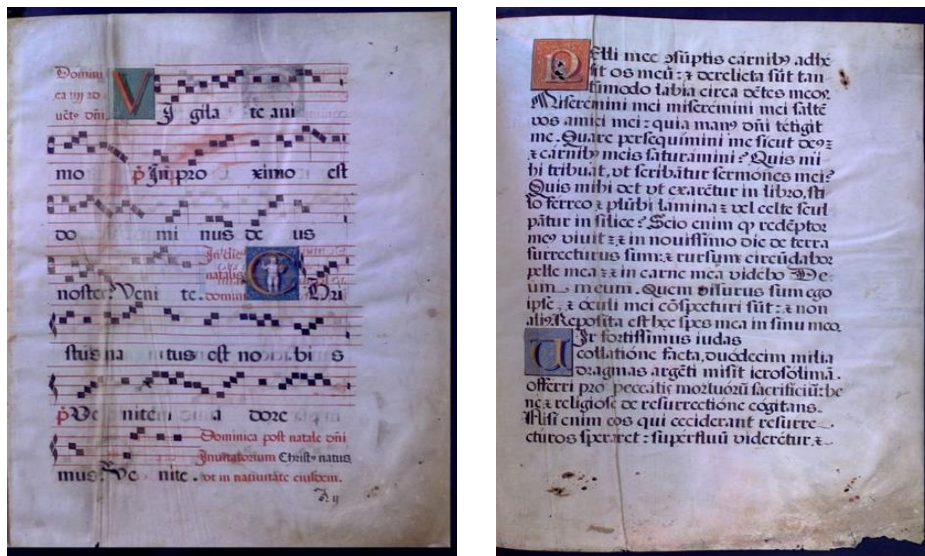 Domini
ca iiij ad
uētꝰ dñi
V I gila te ani
mo ꝑ In pro ximo est
do mi nus de us
noster. Veni te.
In die
natalis
domini
C Dri
stus na tus est no bi s
ꝑ Ve nitem a dore
mus. Ve nite.
Dominica post natale dñi
Inuitatorium Christꝰ natus
vt in natiuitate eiusdem.
A ij
PElli mee ꝯsūptis carnibꝰ adhe
sit os meū: ⁊ derelicta sūt tan
tūmodo labia circa dētes meos.
Miserémini mei miserémini mei salté
vos amici mei: quia manꝰ dñi tétigit
me. Quare persequímini me sicut deꝰ: ⁊
⁊ carnibꝰ meis saturamini? Quis mi
hi tribuat, vt scribātur sermónes mei?
Quis mihi det vt exarétur in libro, sti
lo ferreo ⁊ plūbi lamina: ⁊ vel celte scul
pātur in silice? Scio enim qꝫ redēptor
meꝰ viuit: ⁊ in nouissimo die de terra
surrecturus sum: ⁊ rursum circūdabor
pelle mea: ⁊ in carne mea vidébo De
um meum. Quem visurus sum ego
ipse, ⁊ óculi mei cōspecturi sūt: ⁊ non
aliꝰ. Reposita est hec spes mea in sinu meo.
UIr fortissimus iudas
collatióne facta, duódecim milia
dragmas argēti misit ierosólimā.
offerri pro peccátis mortuórū sacrificiū: be
ne ⁊ religióse de resurrectióne cógitans.
Nisi enim eos qui ceciderant resurre
cturos speraret: supérfluū viderétur, ⁊